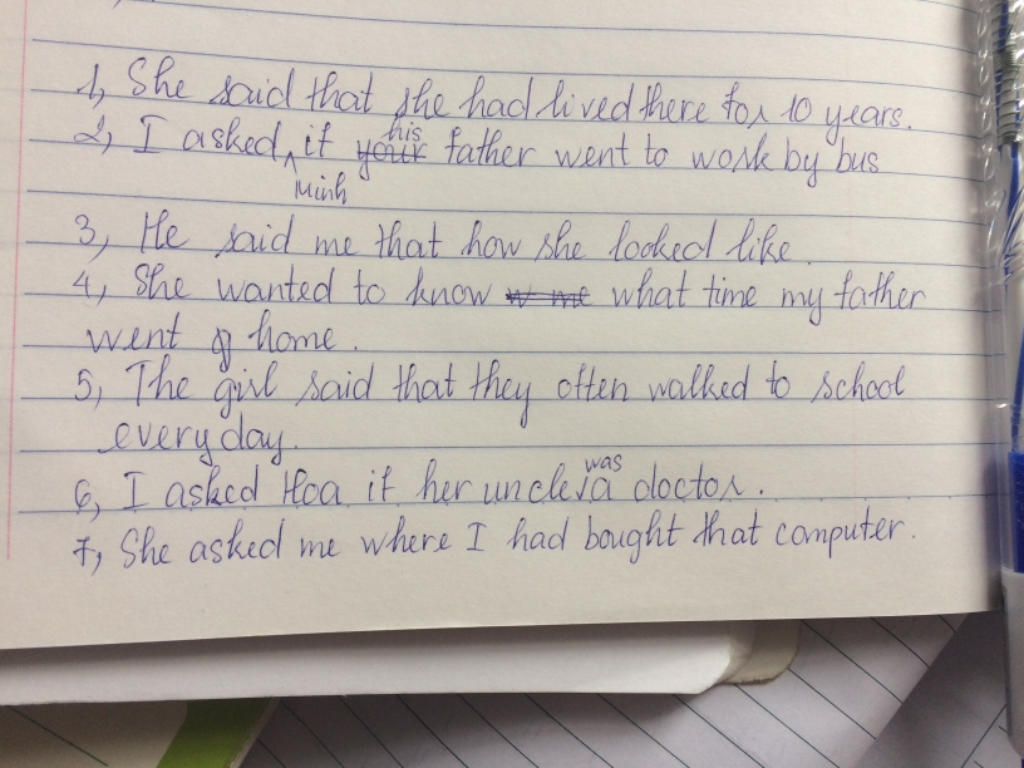 1, She said that she had lived there for 10 years.
2, I asked Minh if his father went to work by bus
3, He said me that how she looked like.
4, She wanted to know what time my father
went home.
5, The girl said that they often walked to school
every day.
6, I asked Hoa if her uncle was a doctor.
7, She asked me where I had bought that computer.